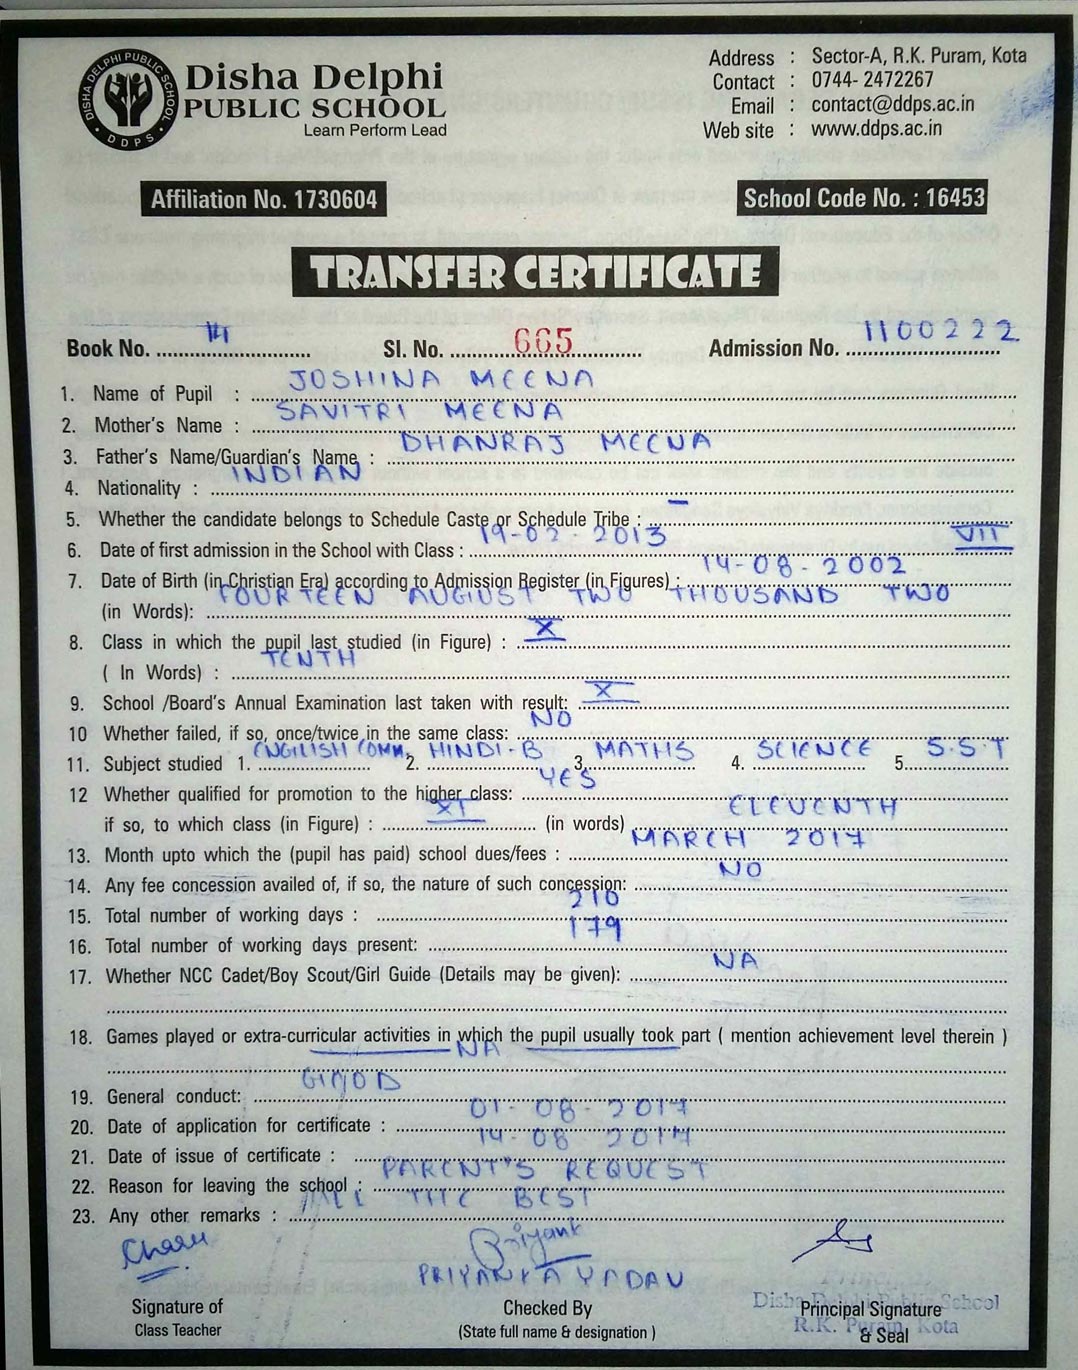 DISHA DELPHI PUBLIC SCHOOL
DDPS
Disha Delphi
PUBLIC SCHOOL
Learn Perform Lead
Address : Sector-A, R.K. Puram, Kota
Contact : 0744- 2472267
Email : contact@ddps.ac.in
Web site : www.ddps.ac.in
Affiliation No. 1730604
School Code No. : 16453
TRANSFER CERTIFICATE
Book No. 14 Sl. No. 665 Admission No. 1100222
1. Name of Pupil : JOSHINA MEENA
2. Mother's Name : SAVITRI MEENA
3. Father's Name/Guardian's Name : DHANRAJ MEENA
4. Nationality : INDIAN
5. Whether the candidate belongs to Schedule Caste or Schedule Tribe : –
6. Date of first admission in the School with Class : 19-02-2013 VII
7. Date of Birth (in Christian Era) according to Admission Register (in Figures) : 14-08-2002
(in Words): FOURTEEN AUGUST TWO THOUSAND TWO
8. Class in which the pupil last studied (in Figure) : X
( In Words) : TENTH
9. School /Board's Annual Examination last taken with result: X
10 Whether failed, if so, once/twice in the same class: NO
11. Subject studied 1. ENGLISH COMM. 2. HINDI-B 3. MATHS 4. SCIENCE 5. S.S.T
12 Whether qualified for promotion to the higher class: YES
if so, to which class (in Figure) : XI (in words) ELEVENTH
13. Month upto which the (pupil has paid) school dues/fees : MARCH 2017
14. Any fee concession availed of, if so, the nature of such concession: NO
15. Total number of working days : 210
16. Total number of working days present: 179
17. Whether NCC Cadet/Boy Scout/Girl Guide (Details may be given): NA
18. Games played or extra-curricular activities in which the pupil usually took part ( mention achievement level therein )
NA
19. General conduct: GOOD
20. Date of application for certificate : 01-08-2017
21. Date of issue of certificate : 14-08-2017
22. Reason for leaving the school : PARENT'S REQUEST
23. Any other remarks : ALL THE BEST
Charu Priyank
PRIYANKA YADAV
Signature of Class Teacher
Checked By
(State full name & designation )
Principal Signature & Seal
Disha Delphi Public School
R.K. Puram, Kota